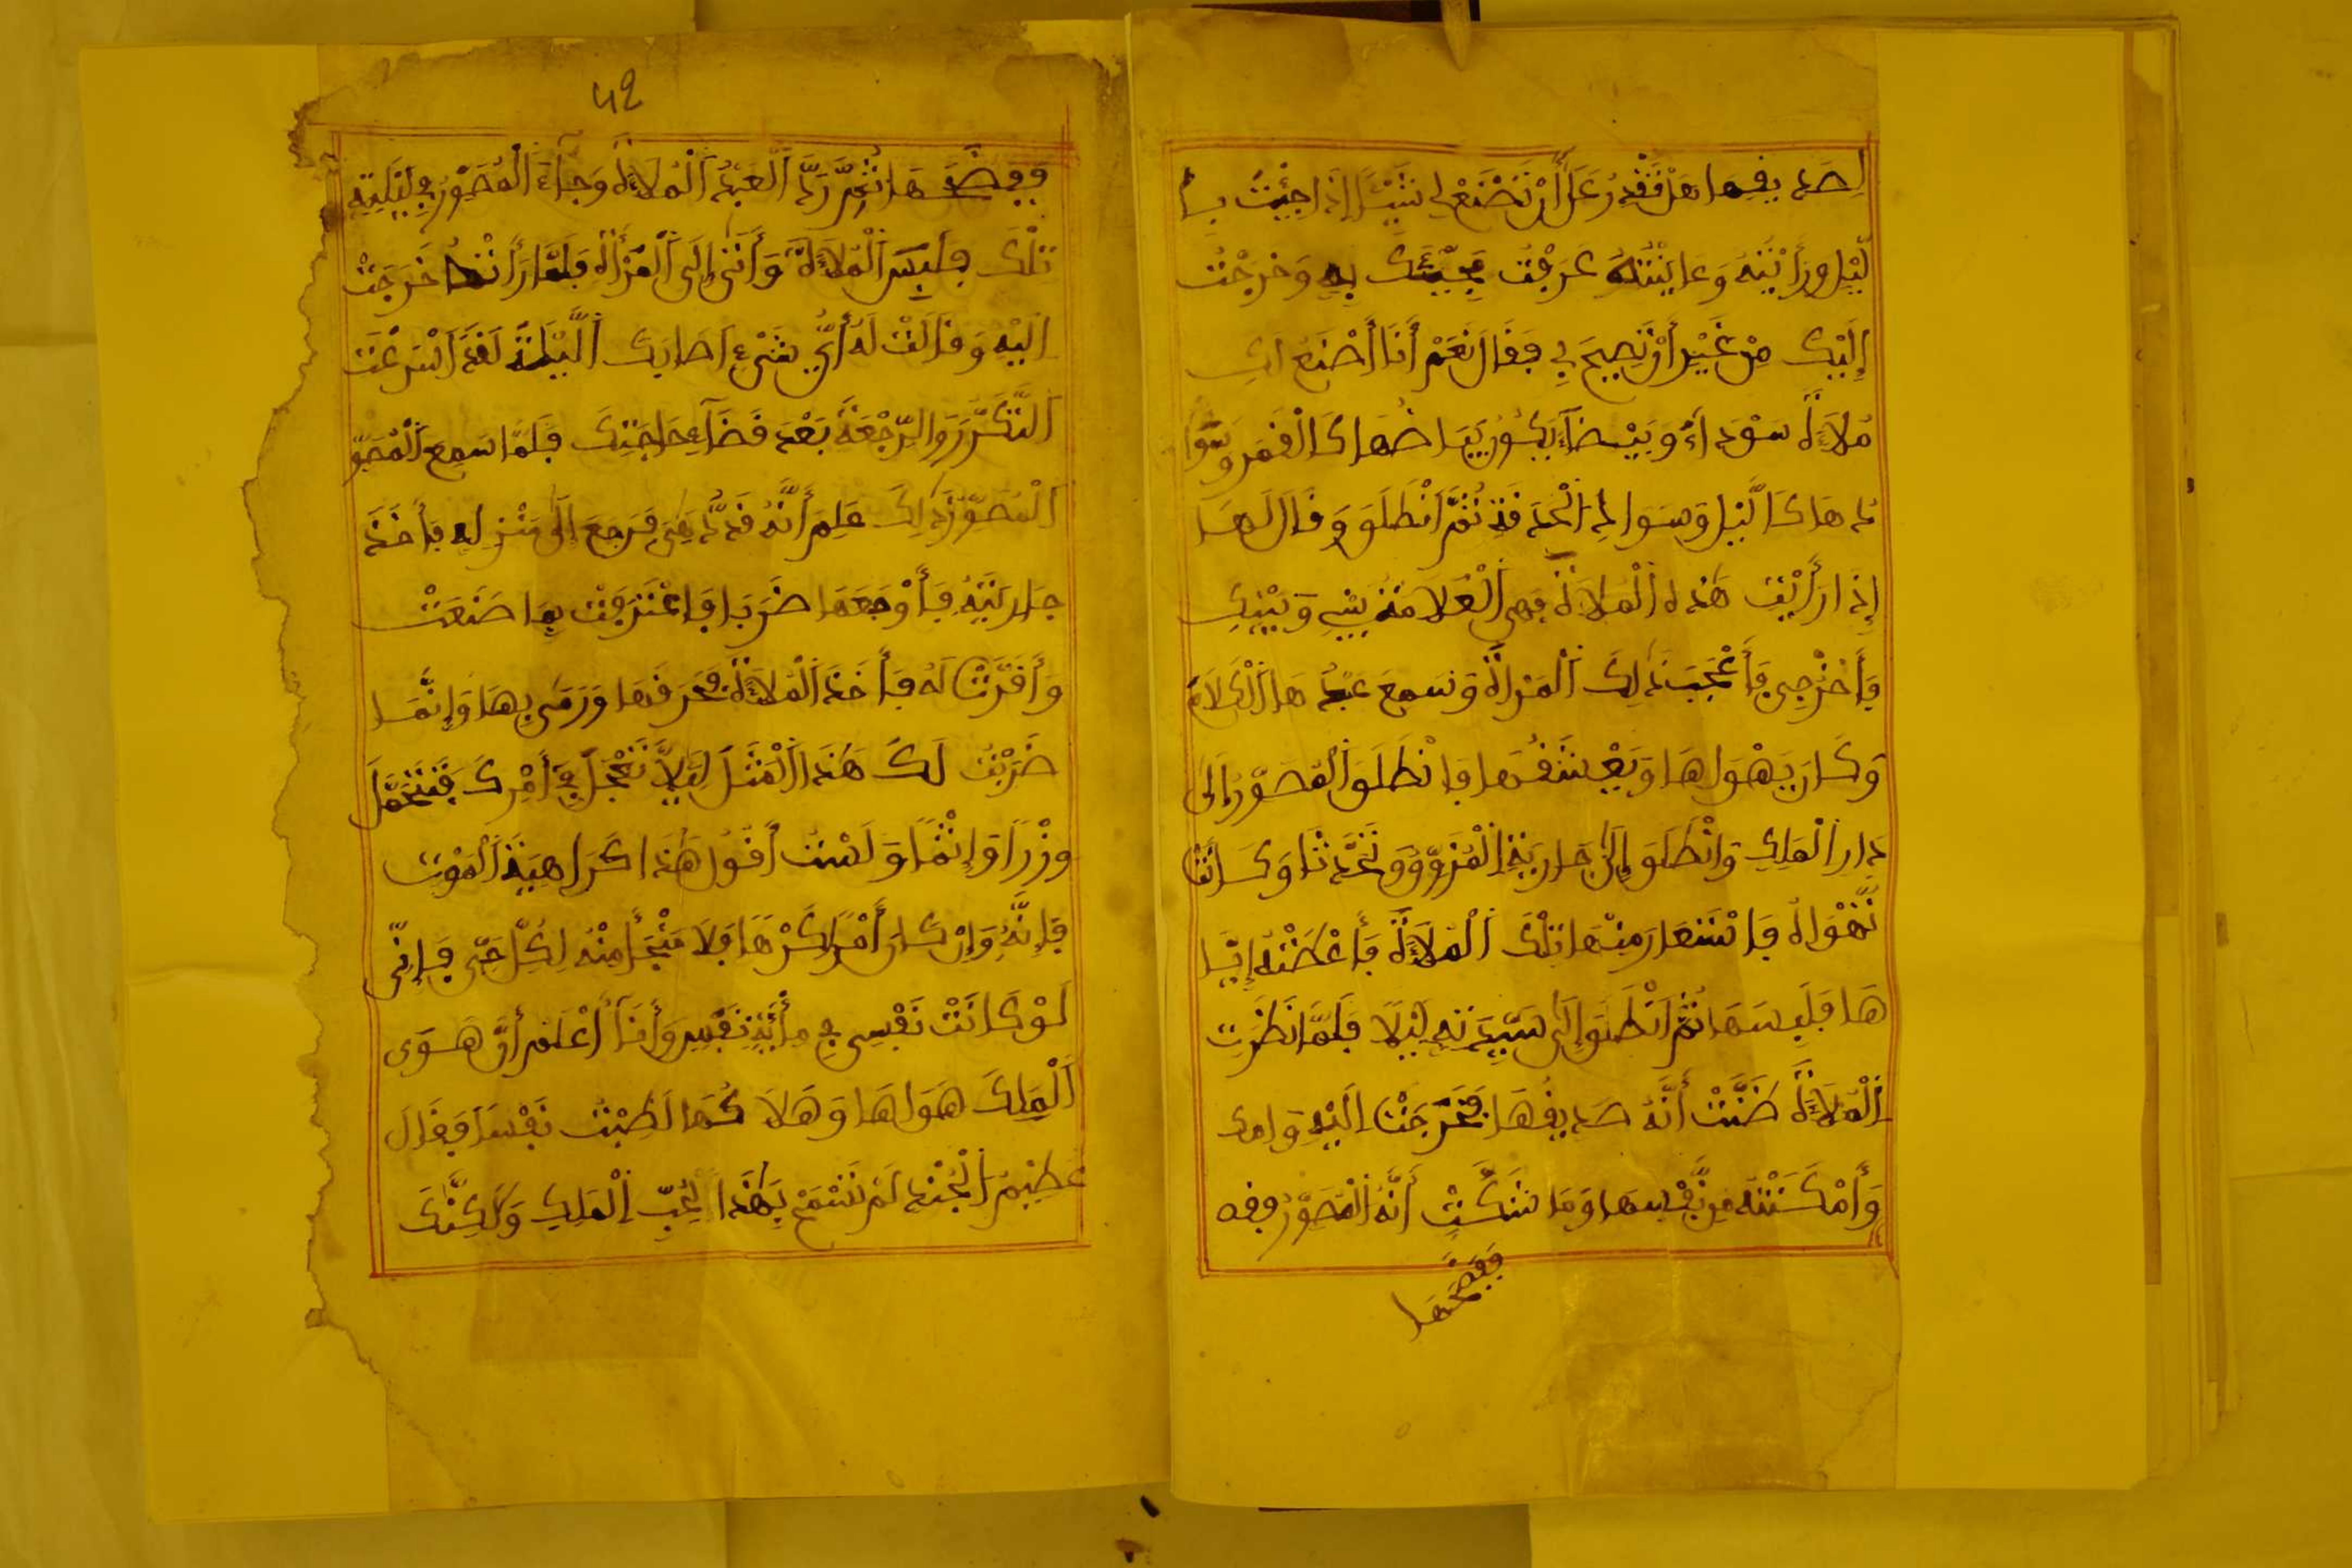 لِصَدِيفِهَا هَلْ تَقْدِرُ عَلَى أَنْ تَصْنَعَ لِي شَيْئًا إِذَا جِئْتَ بِا
لَّيْلِ وَرَأَيْتُهُ وَعَايَنْتُهُ عَرَفْتُ مَجِيئَكَ بِهِ وَخَرَجْتُ
إِلَيْكَ مِنْ غَيْرِ أَنْ تَصِيحَ بِي فَقَالَ نَعَمْ أَنَا أَصْنَعُ لَكِ
مُلَاءَةً سَوْدَاءَ وَبَيْضَاءَ يَكُونُ بَيَاضُهَا كَالْقَمَرِ وَسَوَا
دُهَا كَاللَّيْلِ وَسَوَادِ الْحَدَقَةِ ثُمَّ انْطَلَقَ وَقَالَ لَهَا
إِذَا رَأَيْتِ هَذِهِ الْمُلَاءَةَ فَهِيَ الْعَلَامَةُ بَيْنِي وَبَيْنَكِ
فَاخْرُجِي فَأَعْجَبَ ذَلِكَ الْمَرْأَةَ وَسَمِعَ عَبْدُهَا الْكَلَامَ
وَكَانَ يَهْوَاهَا وَيَعْشَقُهَا فَانْطَلَقَ الْمُصَوِّرُ إِلَى
دَارِ الْمَلِكِ وَانْطَلَقَ إِلَى جَارِيَةِ الْمُزَوِّقِ وَتَحَدَّثَا وَكَانَتْ
تَهْوَاهُ فَاسْتَعَارَ مِنْهَا تِلْكَ الْمُلَاءَةَ فَأَعْطَتْهُ إِيَّا
هَا فَلَبِسَهَا ثُمَّ انْطَلَقَ إِلَى سَيِّدَتِهِ لَيْلًا فَلَمَّا نَظَرَتِ
الْمُلَاءَةَ ظَنَّتْ أَنَّهُ صَدِيقُهَا فَخَرَجَتْ إِلَيْهِ وَامك
وَأَمْكَنَتْهُ مِنْ نَفْسِهَا وَمَا شَكَّتْ أَنَّهُ الْمُصَوِّرُ وفه
ثُمَّ رَدَّ الْعَبْدُ الْمُلَاءَةَ وَجَاءَ الْمُصَوِّرُ فِي لَيْلَتِهِ
تِلْكَ فَلَبِسَ الْمُلَاءَةَ وَأَتَى إِلَى الْمَرْأَةِ فَلَمَّا رَأَتْهَا خَرَجَتْ
إِلَيْهِ وَقَالَتْ لَهُ أَيُّ شَيْءٍ أَصَابَكَ اللَّيْلَةَ لَقَدْ أَسْرَعْتَ
التَّكَرُّرَ وَالرَّجْعَةَ بَعْدَ قَضَاءِ حَاجَتِكَ فَلَمَّا سَمِعَ الْمُصَوِّ
الْمُصَوِّرُ ذَلِكَ عَلِمَ أَنَّهُ قَدْ دُهِيَ فَرَجَعَ إِلَى مَنْزِلِهِ فَأَخَذَ
جَارِيَتَهُ فَأَوْجَعَهَا ضَرْبًا فَاعْتَرَفَتْ بِمَا صَنَعَتْ
وَأَقَرَّتْ لَهُ فَأَخَذَ الْمُلَاءَةَ فَحَرَقَهَا وَرَمَى بِهَا وَإِنَّمَا
ضَرَبْتُ لَكَ هَذَا الْمَثَلَ لِئَلَّا تَعْجَلَ فِي أَمْرِكَ فَتَتَحَمَّلَ
وِزْرًا وَإِثْمًا وَلَسْتُ أَقُولُ هَذَا كَرَاهِيَةَ الْمَوْتِ
فَإِنَّهُ وَإِنْ كَانَ أَمْرًا كَرْهًا فَلَا مَنْجَأَ مِنْهُ لِكُلِّ حَيٍّ فَإِنِّي
لَوْ كَانَتْ نَفْسِي فِي مِائَةِ نَفْسٍ وَأَنَا أَعْلَمُ أَنَّ هَوَى
الْمَلِكِ هَوَاهَا وَهَلَاكُهَا لَطِبْتُ نَفْسًا فَقَالَ
عَظِيمُ الْجُنْدِ لَمْ تَسْمَحْ بِهَذَا لِحُبِّ الْمَلِكِ وَلَكِنَّكَ